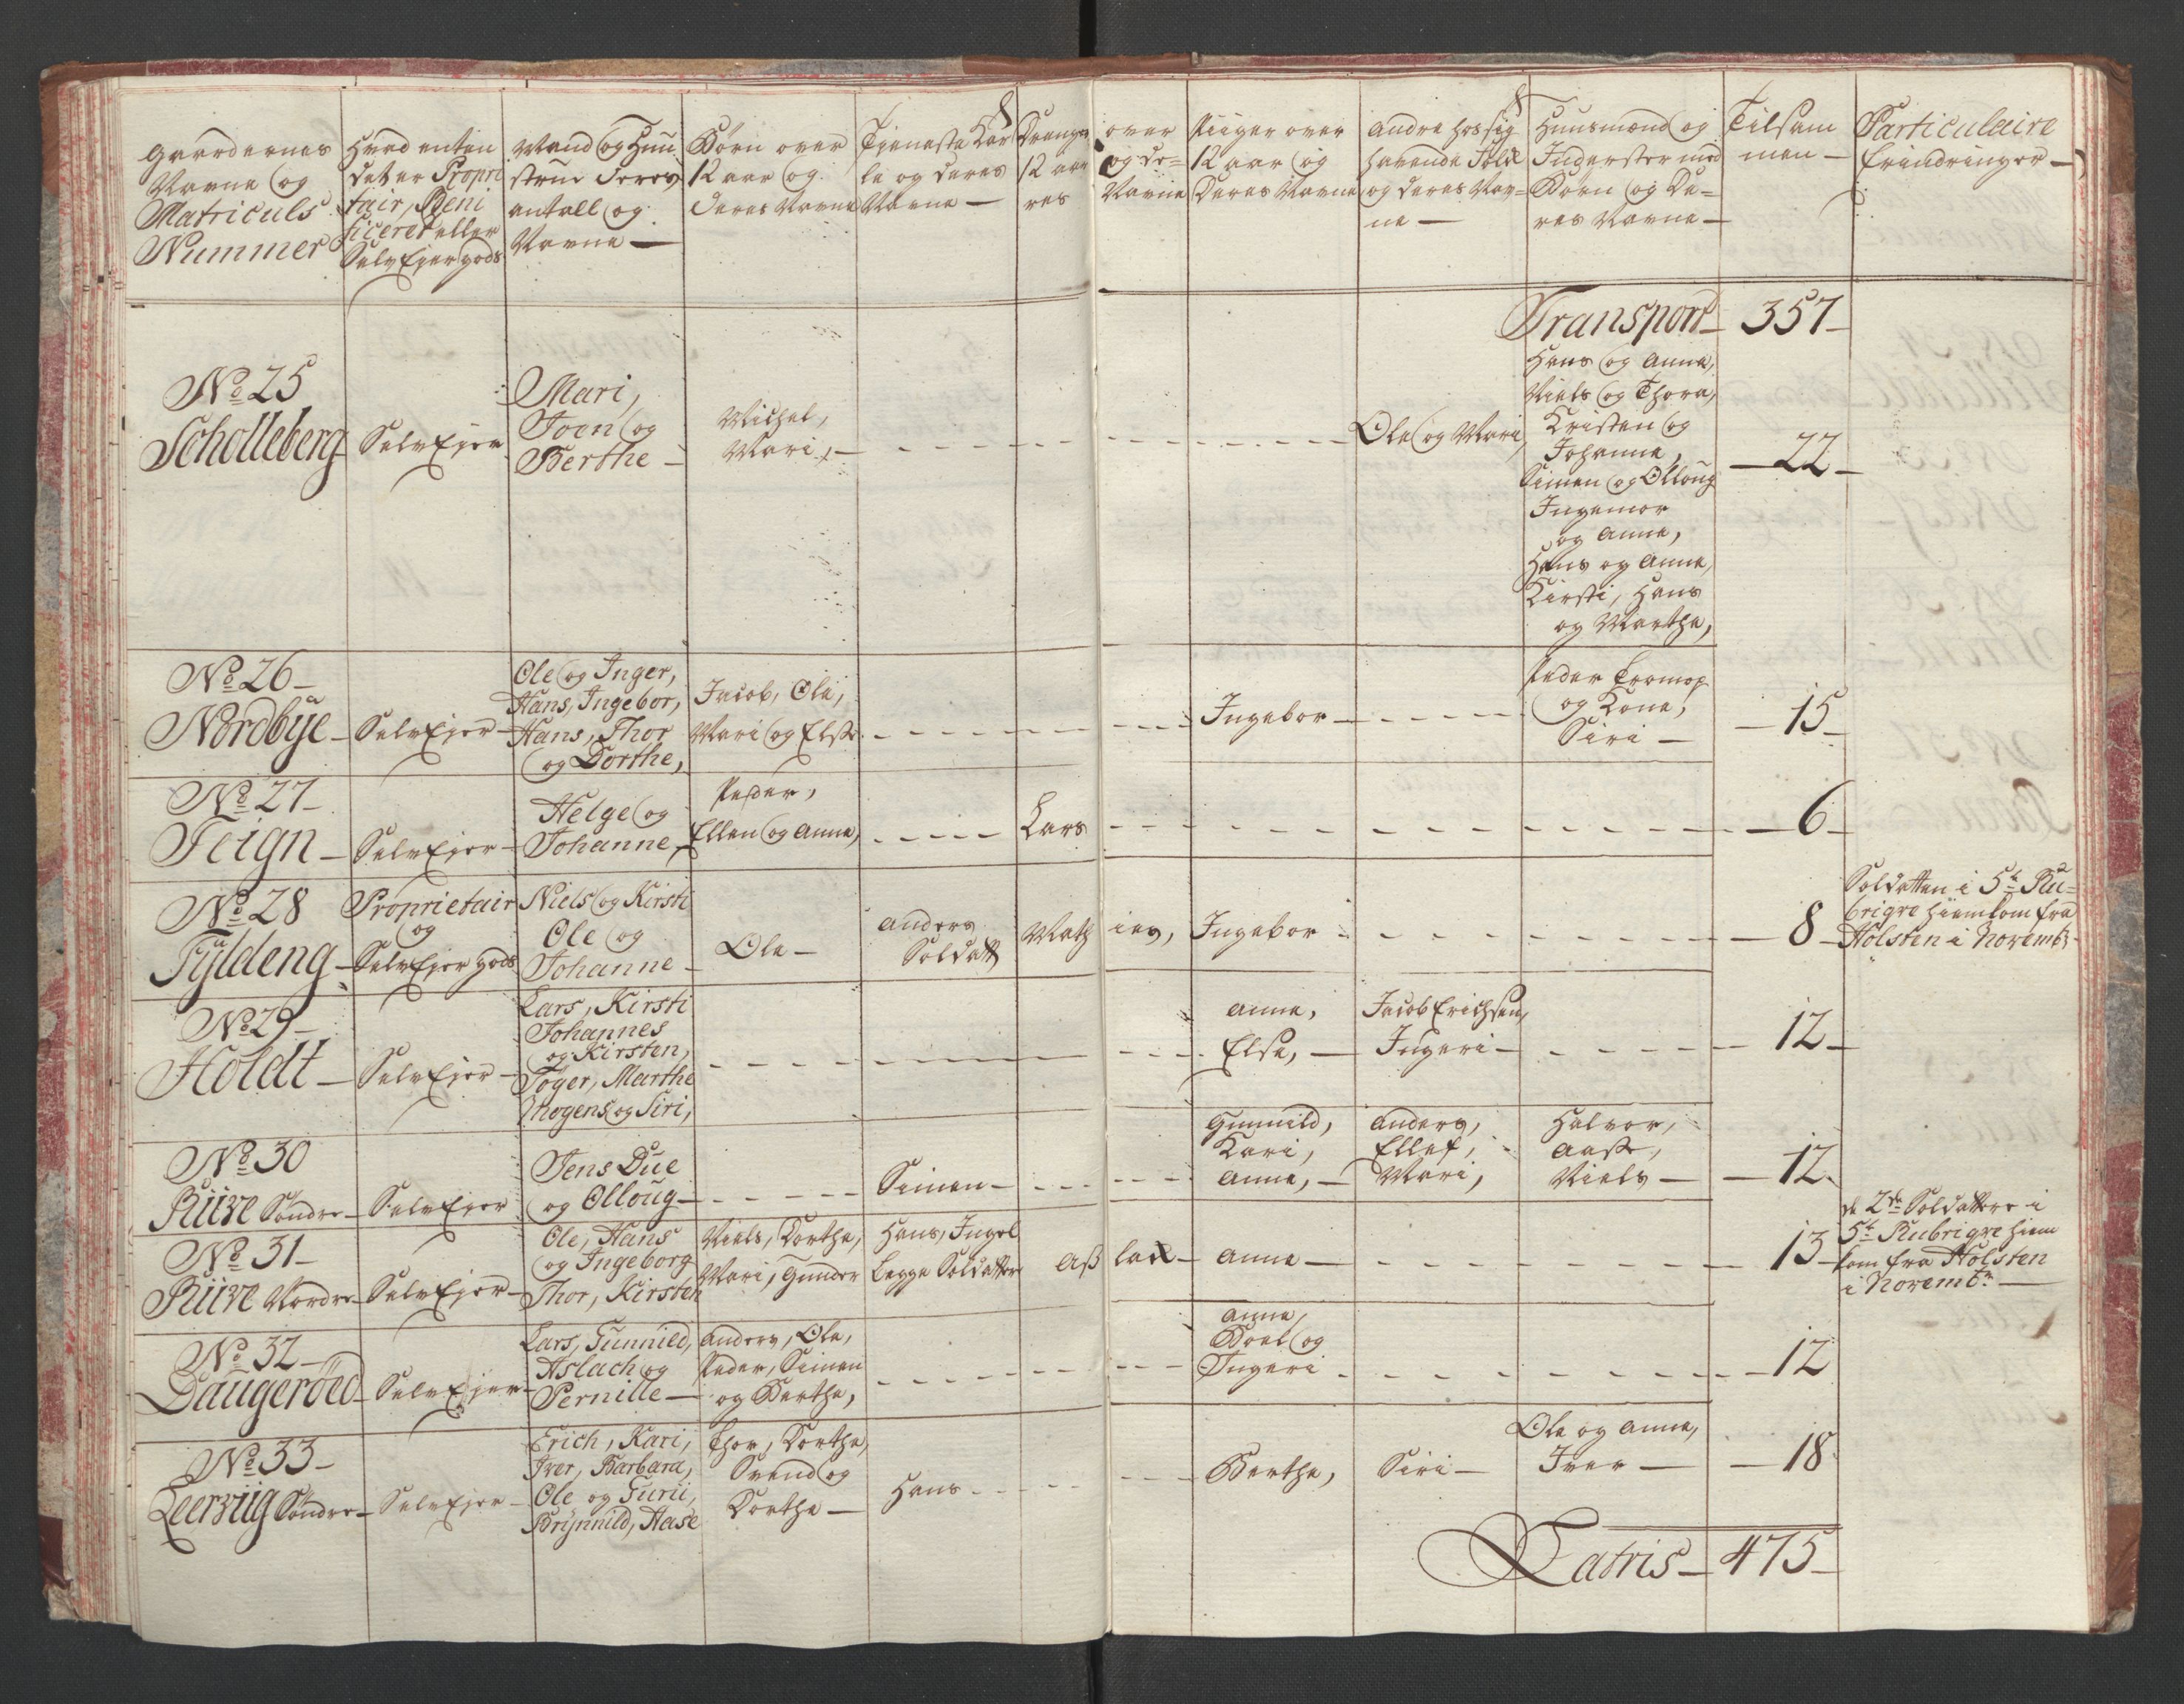 Gaardernes
Navne og
Matriculs
Nummer
Hvad enten
det er Propri
tair, Beni
ficeret eller
Selv Ejer gods
Mand og Huu
strue Deres
antall og
Navne —
Børn over
12 aar og
Deres Navne
Tieneste Kar
le og deres
Navne —
Drenge over
12 aar og De=
res Navne
Piiger over
12 aar og
Deres Navne
Andre hos sig
havende Folk
og deres Nav=
ne —
Huusmænd og
Inderster med
Børn og De=
res Navne —
Tilsam
men —
Particulaire
Erindringer —
Transport — 357 —
No 25
Scholleberg
Selv Ejer
Mari,
Joen og
Berthe —
Michel,
Mari, —
Ole og Mari,
Hans og Anne,
Niels og Thora,
Kristen og
Johanne,
Simen og Olloug
Ingemor
og Anne,
Hans og Anne,
Kirsti, Hans
og Marthe,
— 22 —
No 26 —
Nordbÿe —
Selv Ejer —
Ole og Inger,
Hans, Ingebor,
Hans, Thor
og Dorthe,
Jacob, Ole,
Mari og Else
Ingebor —
Peder
og Kone,
Siri —
— 15 —
No 27 —
Teign —
Selv Ejer —
Helge og
Johanne,
Peder,
Ellen og Anne,
Lars
— 6 —
No 28
Fÿldeng —
Proprietair
og
Selv Ejer Gods
Niels og Kirsti
Ole og
Johanne —
Ole —
Anders
Soldatt
Mathies,
Ingebor
— 8 —
Soldatten i 5te Ru=
briqve hiemkom fra
Holsten i Novembr.
No 29 —
Holdt —
Selv Ejer —
Lars, Kirsti
Johannes
og Kirsten,
Toger, Marthe
Mogens og Siri,
Anne,
Else, —
Jacob Erichsen,
Ingeri —
— 12 —
No 30
Riive Søndre —
Selv Ejer
Jens Due
og Olloug —
Simen —
Gunnild,
Kari,
Anne, —
Anders,
Ellef,
Mari,
Halvor,
Aase,
Niels —
— 12.
No 31 —
Riive Nordre —
Selv Ejer —
Ole, Hans
og Ingeborg
Thor, Kirsten
Niels, Dorthe,
Mari, Gunder
Hans, Ingel
begge Soldatter
Aslack —
Anne —
— 13 —
de 2de Soldattere i
5te Rubriqve hiem
kom fra Holsten
i Novembr. —
No 32 —
Daugerøed —
Selv Ejer —
Lars, Gunnild,
Aslach og
Pernille —
Anders, Ole,
Peder, Simen
og Berthe,
Anne,
Boel og
Ingeri
— 12
No 33 —
Leerviig Søndre —
Selv Ejer —
Erich, Kari,
Iver, Barbara,
Ole og Gurii,
Brÿnnild, Aase
Thor, Dorthe,
Svend og
Dorthe —
Hans
Berthe,
Siri —
Ole og Anne,
Iver —
— 18
Latris — 475 —